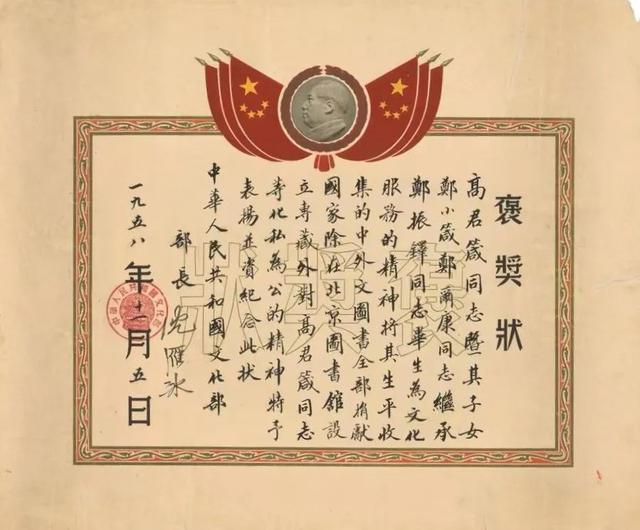 褒獎狀
高君箴同志暨其子女
鄭小箴鄭爾康同志繼承
鄭振鐸同志畢生為文化
服務的精神將其生平收
集的中外文圖書全部捐獻
國家除在北京圖書館設
立專藏外對高君箴同志
等化私為公的精神特予
表揚並資紀念此狀
中華人民共和國文化部
部長 沈雁冰
一九五八年十一月五日
褒獎狀